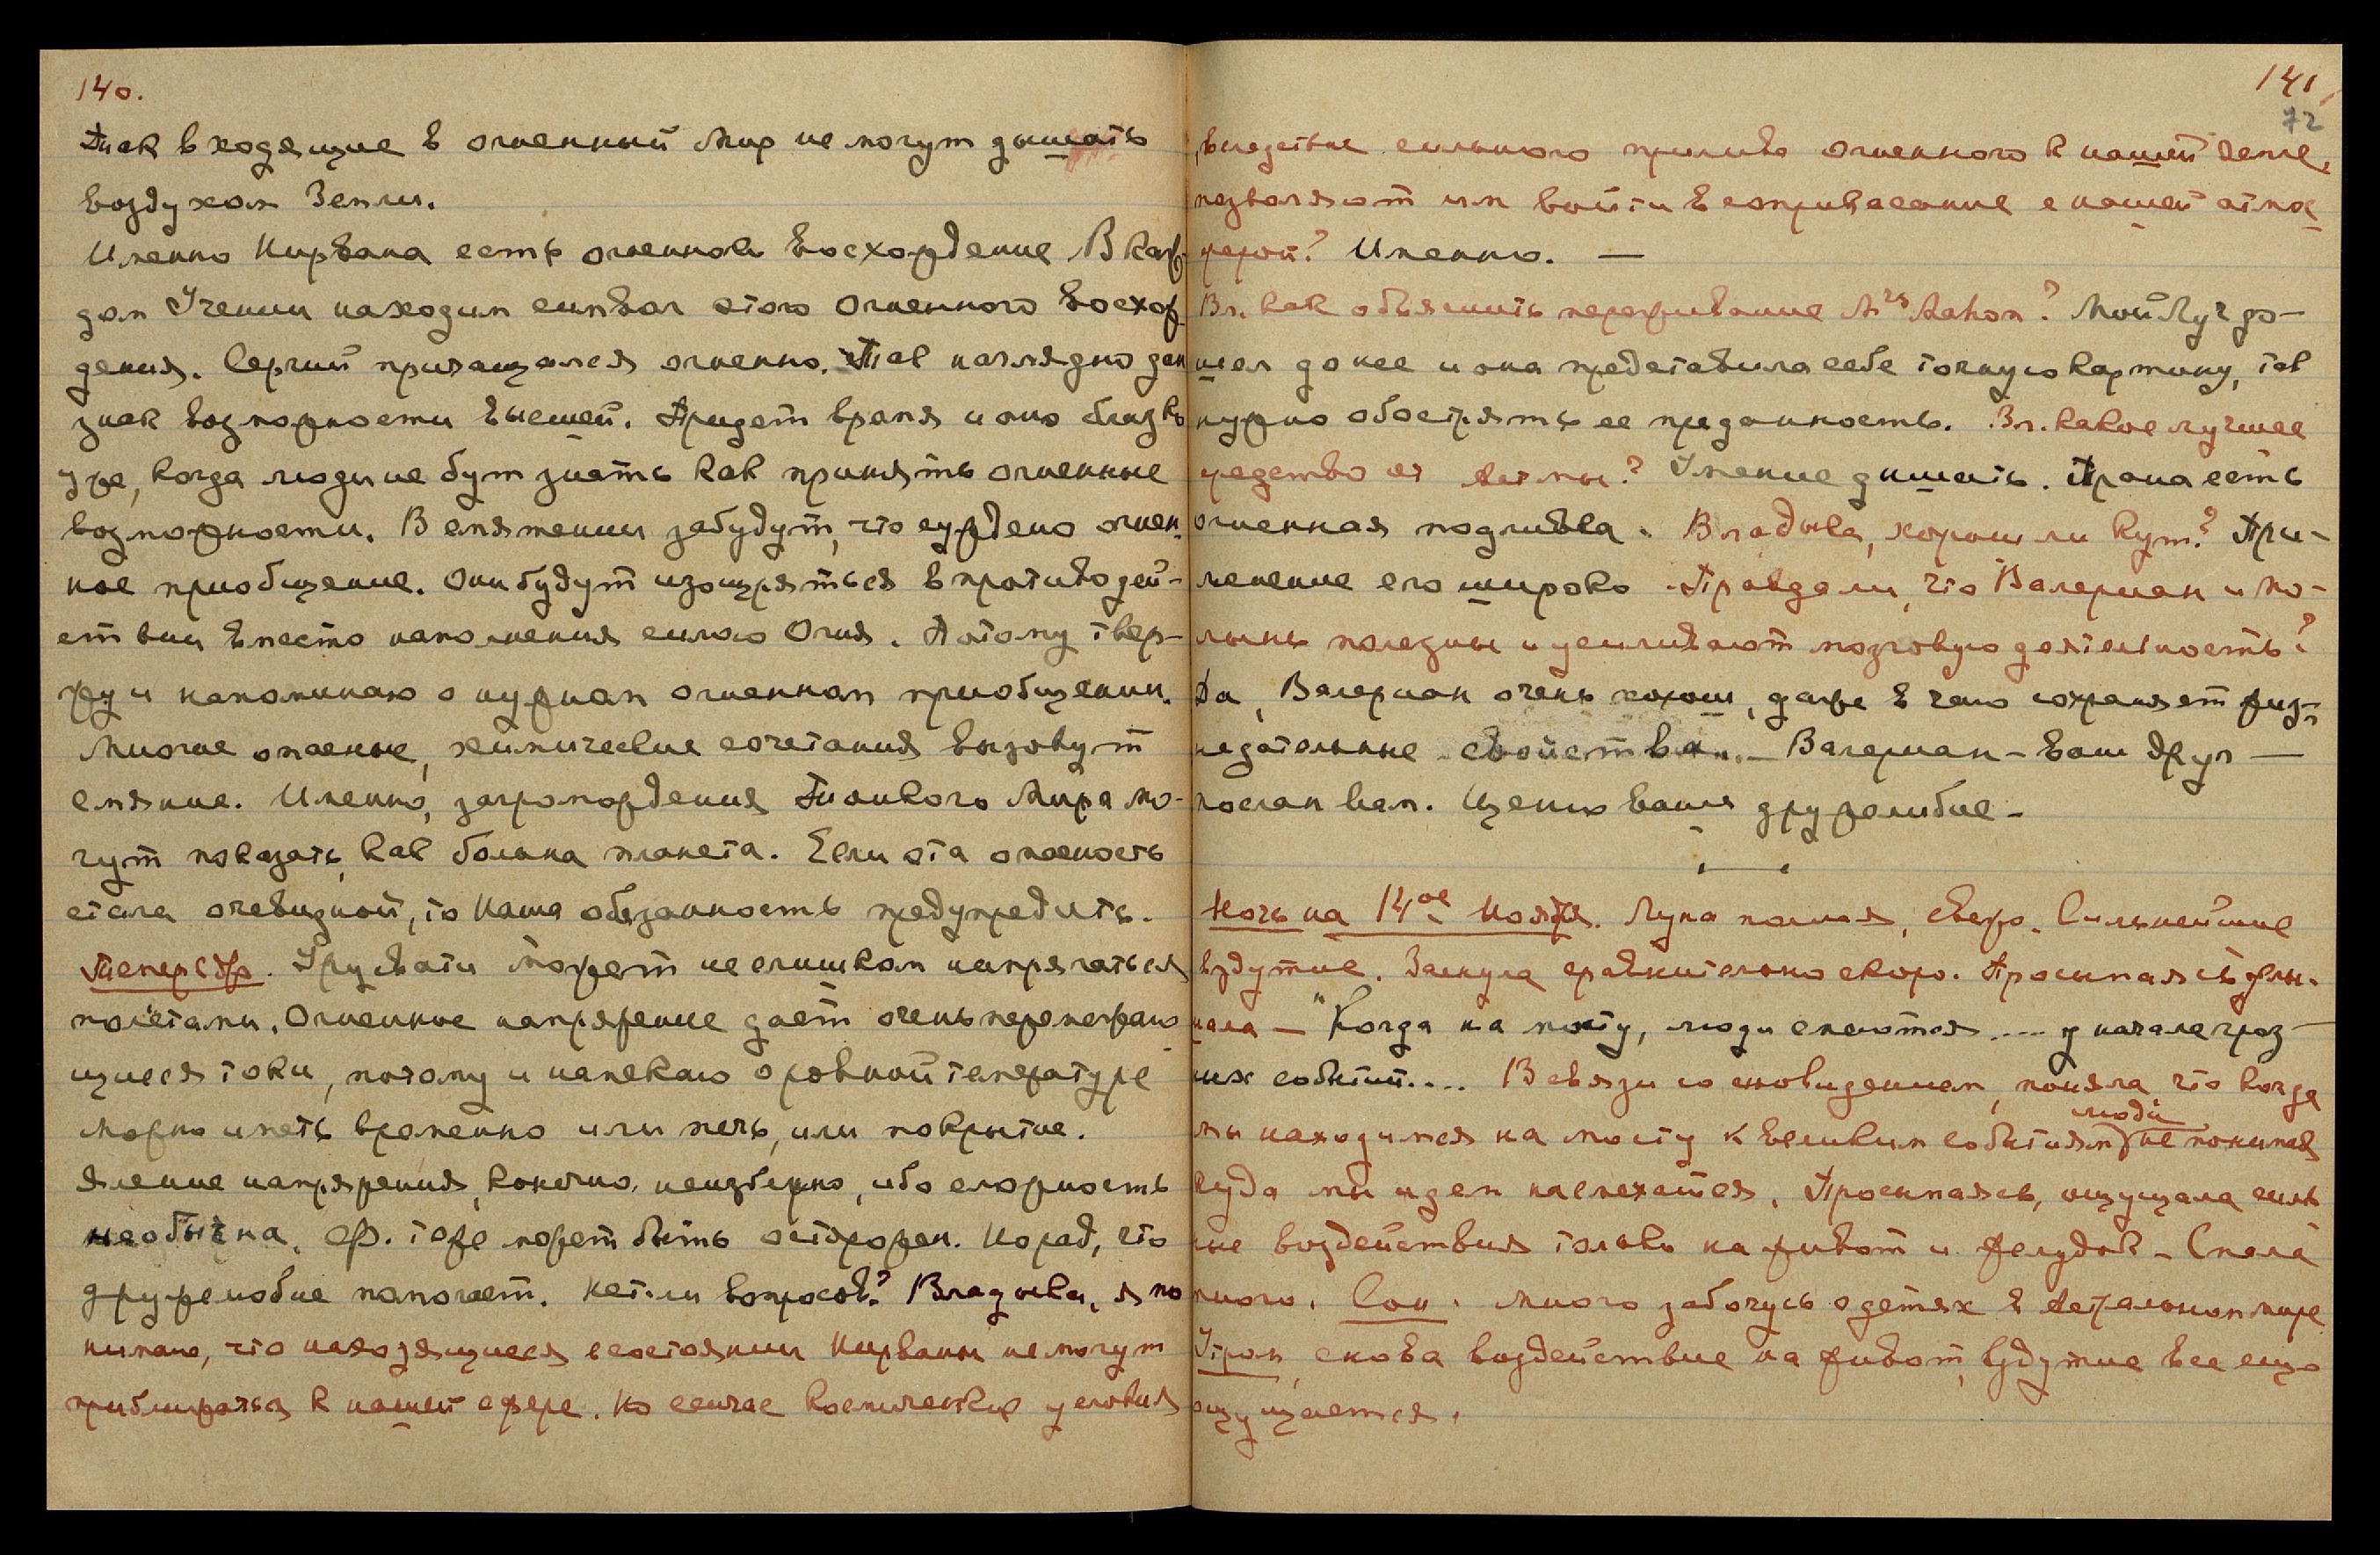 140.
Так входящие в огненный Мир не могут дышать
воздухом Земли.
Именно Нирвана есть огненное восхождение В каж-
дом Учении находим символ этого Огненного восхож-
дения. Сергий причащался огненно. Так наглядно дан
знак возможности высшей. Придет время и оно близко
уже, когда люди не бут знать как принять огненные
возможности. В смятении забудут, что суждено огнен-
ное приобщение. Они будут изощряться в противодей-
ствии вместо наполнения силою Огня. Потому твер-
жу и напоминаю о нужном огненном приобщении.
Многие опасные, химические сочетания вызовут
смяние. Именно, загромождения Тонкого Мира мо-
гут показать, как больна планета. Если эта опасность
стала очевидной, то Наша обязанность предупредить.
Теперь др. Урусвати может не слишком напрягаться
полетами. Огненное напряжение дает очень перемежаю-
щиеся токи, потому и намекаю о ровной температуре
можно иметь временно или печь, или покрытие.
Явление напряжения, конечно, неизбежно, ибо сложность
необычна. Ф. тоже может быть осторожен. Но рад, что
дружелюбие помогает. Нет ли вопросов? Владыка, я по
нимаю, что находящиеся в состоянии Нирваны не могут
приближаться к нашей сфере. Но сейчас космические условия
141
72
вследствие сильного прилива огненного к нашей земле,
позволяют им войти в соприкасание с нашей атмос
ферой? Именно. —
Вл. как объяснить переживание М-rs Dahon? Мой Луч до-
шел до нее и она представила себе точную картину, так
нужно обострять ее преданность. Вл. какое лучшее
средство от Астмы? Умение дышать. Прана есть
огненная подливка. Владыка, хорош ли кут? При-
менение его широко. Правда ли, что Валериан и по-
лынь полезны и усиливают мозговую деятельность?
Да, Валериан очень хорош, даже в чаю сохраняет жиз-
недательные свойства. — Валериан - ваш друг —
послан вам. Ценю ваше дружелюбие —
Ночь на 14ое Ноября. Луна полная, свежо. Сильнейшие
вздутие. Заснула сравнительно скоро. Просыпаясь слы-
шала — "Когда на мосту, люди смеются .... у начала гроз-
ных событий.... В связи со сновидением, поняла что когда
люди
мы находимся на мосту к великим событиям не понимая
куда мы идем насмехаются. Просыпаясь, ощущала силь
ные воздействия только на живот и желудок — Спала
много. Сон. Много забочусь о детях в Астральном мире
Утром, снова воздействие на живот, вздутие все еще
ощущается.